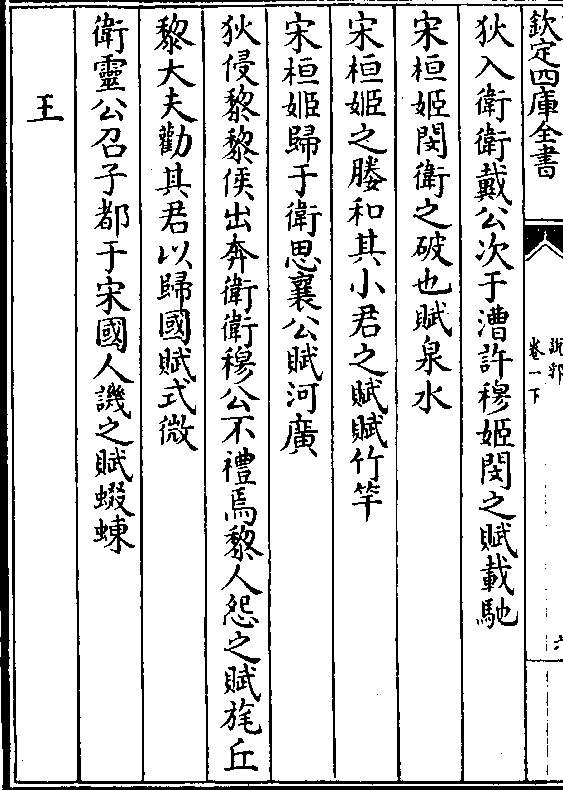 欽定四庫全書
說郛
卷一下
六
狄入衛衛戴公次于漕許穆姬閔之賦載馳
宋桓姬閔衛之破也賦泉水
宋桓姬之媵和其小君之賦賦竹竿
宋桓姬歸于衛思襄公賦河廣
狄侵黎黎侯出奔衛衛穆公不禮焉黎人怨之賦旄丘
黎大夫勸其君以歸國賦式微
衛靈公召子都于宋國人譏之賦蝃蝀
王